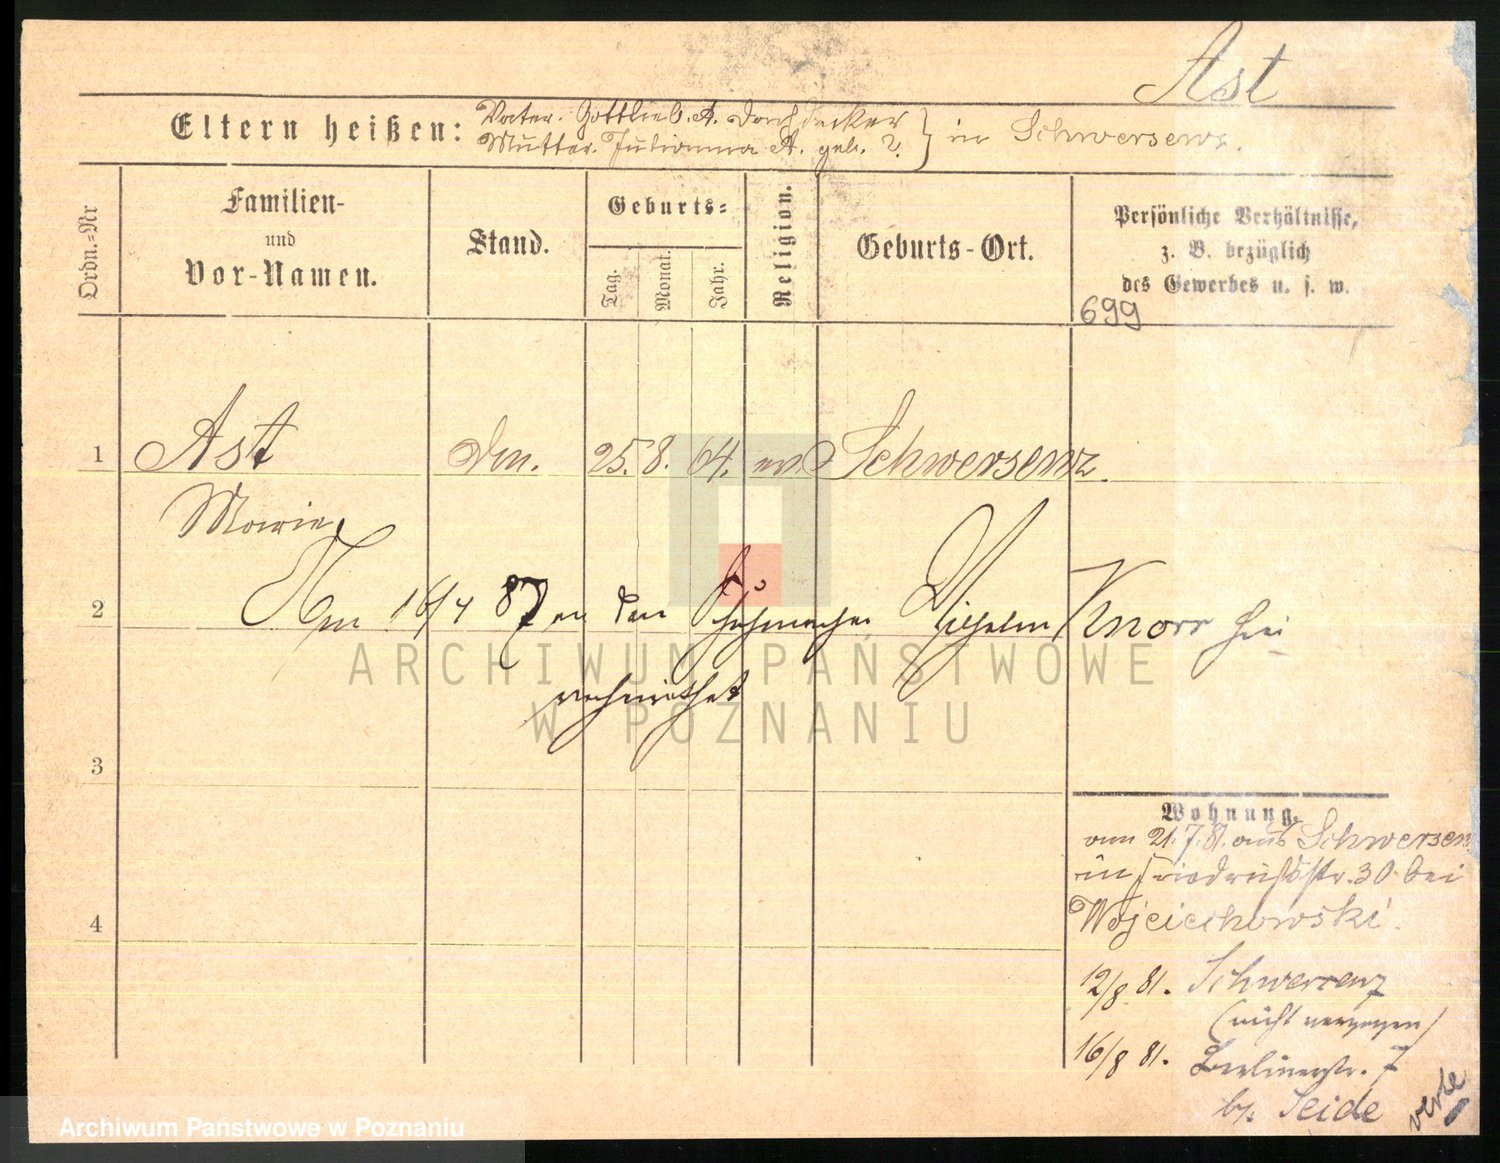 Ast
Eltern heißen: Vater. Gottlieb. A. Dachdecker
Mutter. Julianna A. geb. ?. } in Schwersenz.
Ordn.=Nr
Familien-
und
Vor-Namen.
Stand.
Geburts=
Tag.
Monat.
Jahr.
Religion.
Geburts-Ort.
Persönliche Verhältnisse,
z. B. bezüglich
des Gewerbes u. s. w.
699
1 Ast 25. 8. 64. ev. Schwersenz.
Marie,
2 Am 16/4 87 an den Schuhmacher Wilhelm Knorr hier
verheirathet
3
4
Wohnung.
am 21.7.81. aus Schwersenz
in Friedrichsstr. 30 bei
Wojciechowski.
12/8 81. Schwersenz
(nicht verzogen)
16/8 81. Berlinerstr. 7
b/. Seide
verte
ARCHIWUM PAŃSTWOWE
W POZNANIU
Archiwum Państwowe w Poznaniu